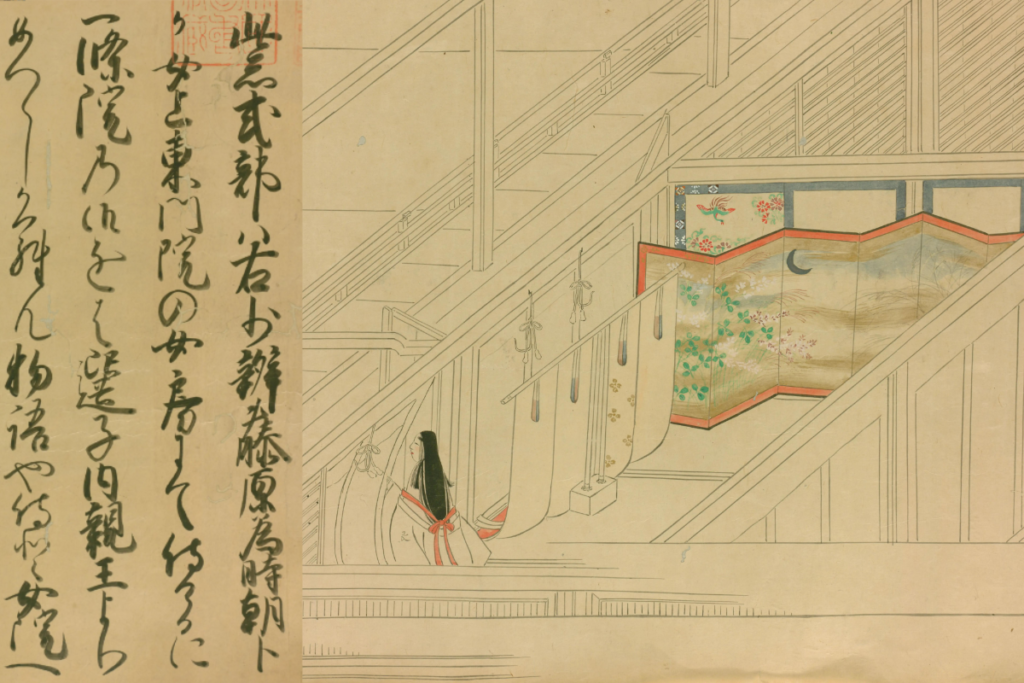 此紫式部ハ右少辨藤原為時朝臣
か女上東門院の女房にて侍るに
一條院乃御をは選子内親王より
めつらしからん物語や侍ると女院へ